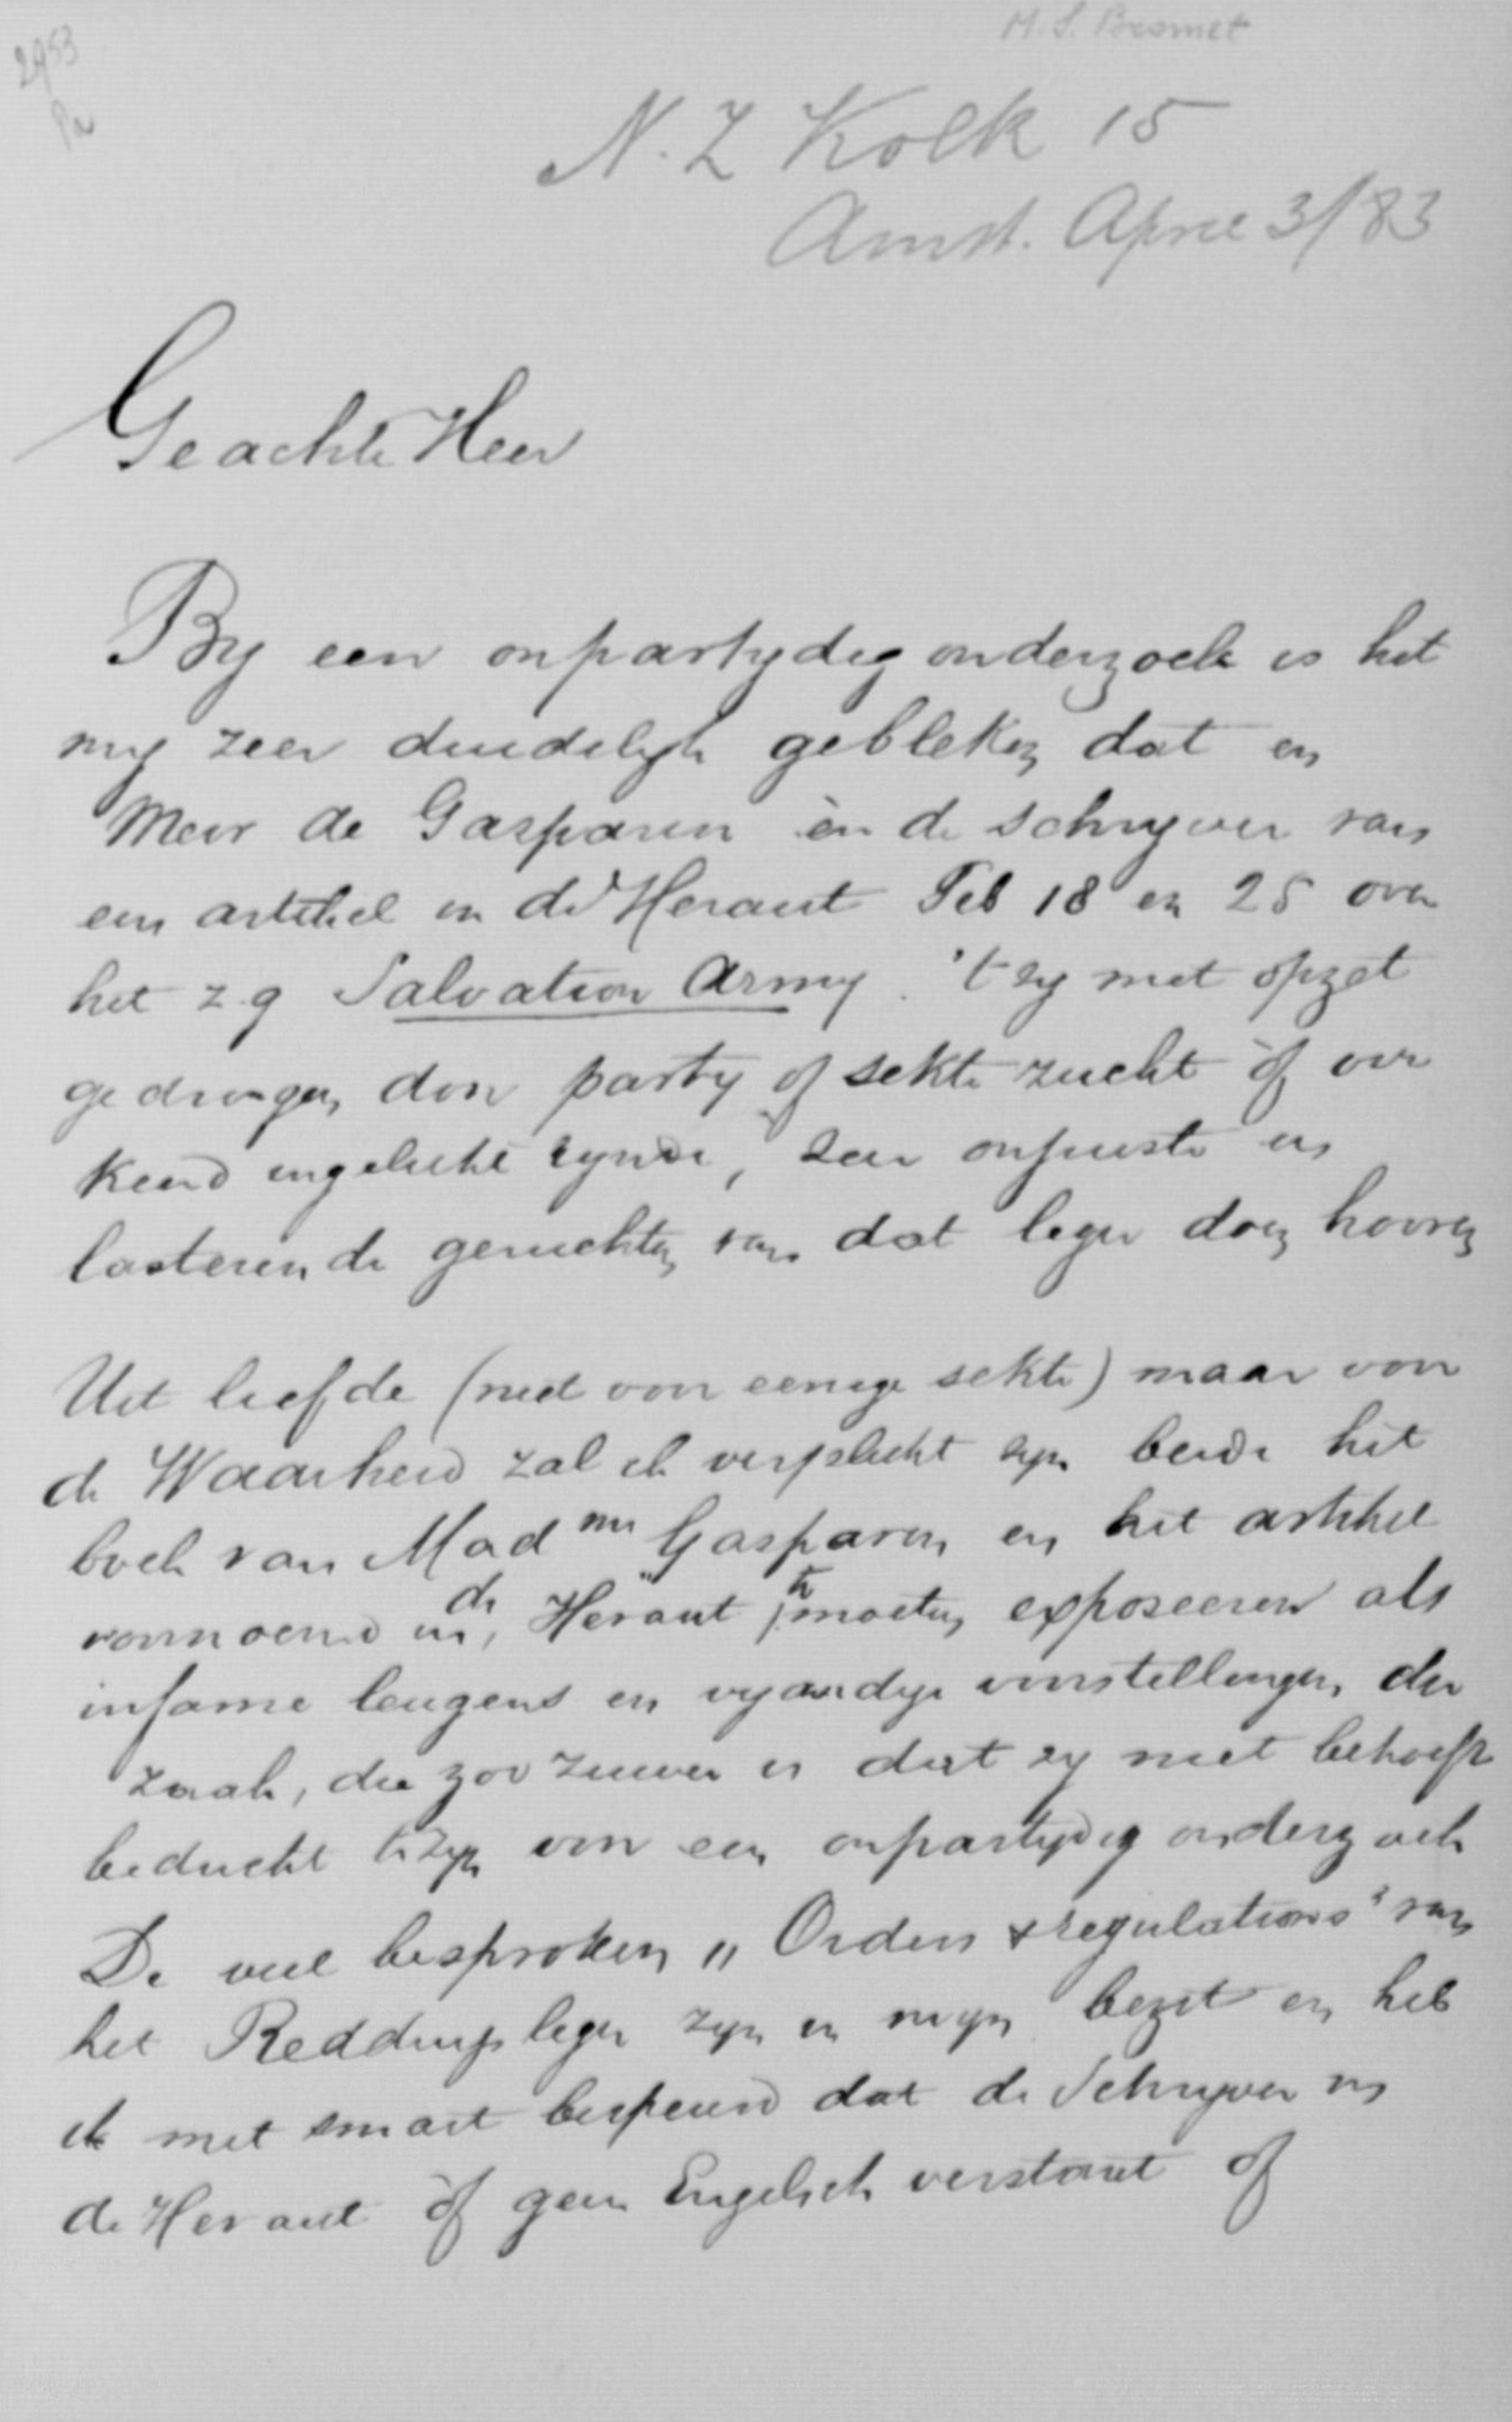 2953
M. S. Bromet
N. Z Kolk 15
Amst. April 3/83
Geachte Heer
By een onpartydig onderzoek is het
my zeer duidelyk gebleken dat en
Mevr de Gasparin èn de schryver van
een artikel in de Heraut Feb 18 en 25 over
het z.g Salvation Army. 't zy met opzet
gedrongen door party of sekte zucht òf ver
keerd ingelicht zynde, zeer onjuiste en
lasterende geruchten van dat leger doen hooren
Uit liefde (niet voor eenige sekte) maar voor
de Waarheid zal ik verplicht zyn beide het
boek van Mad me Gasparin en het artikel
voornoemd in de "Heraut te moeten exposeeren als
infame leugens en vyandige voorstellingen der
zaak, die zoo zuiver is dat zy niet behoeft
beducht te zyn voor een onpartydig onderzoek
De veel besproken „Orders & regulations" van
het Reddingsleger zyn in myn bezit en heb
ik met smart bespeurd dat de Schryver in
de Heraut òf geen Engelsch verstaat òf